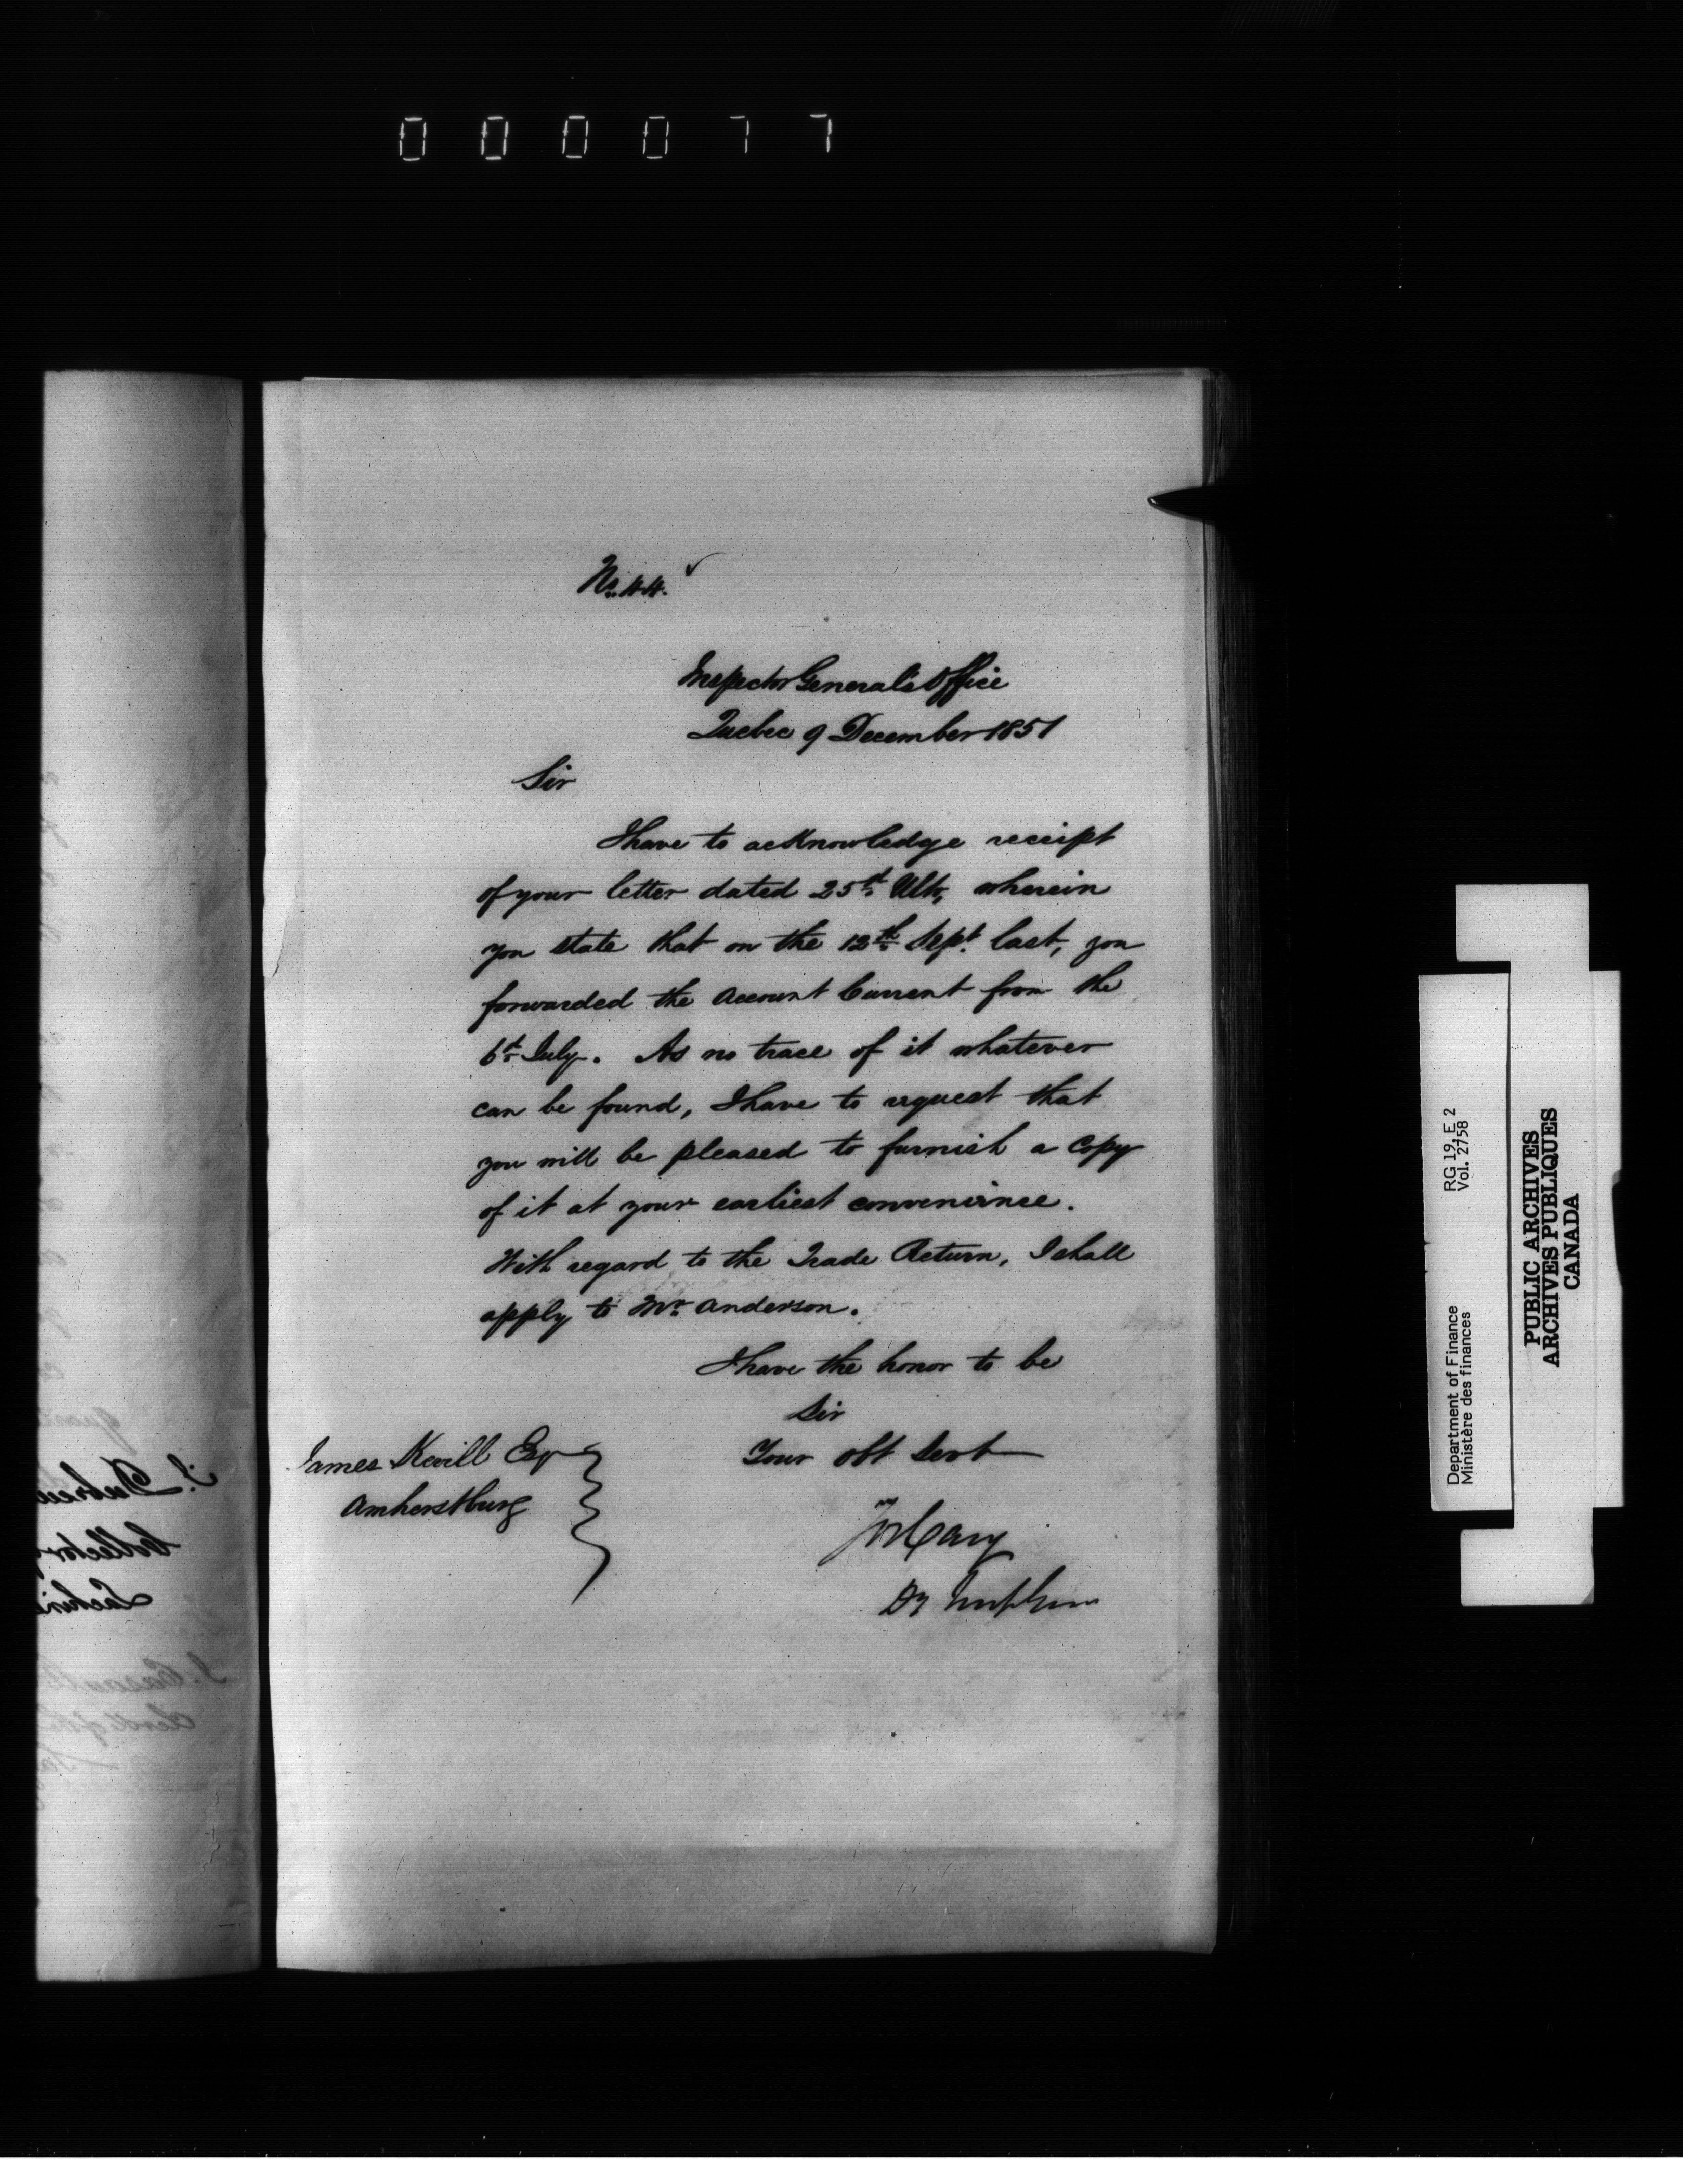 000077
No. 44.
Inspector General's Office
Quebec 9 December 1851
Sir
I have to acknowledge receipt
of your letter dated 25th Ulto, wherein
you state that on the 12th Sept. last, you
forwarded the Account Current from the
6th July. As no trace of it whatever
can be found, I have to request that
you will be pleased to furnish a copy
of it at your earliest convenience.
With regard to the Trade Return, I shall
apply to Mr. Anderson.
I have the honor to be
Sir
Your obt Servt
James Kevill Esq
Amherstburg
Cary
Dy Insp Genl
RG 19, E 2
Vol. 2758
Department of Finance
Ministère des finances
PUBLIC ARCHIVES
ARCHIVES PUBLIQUES
CANADA